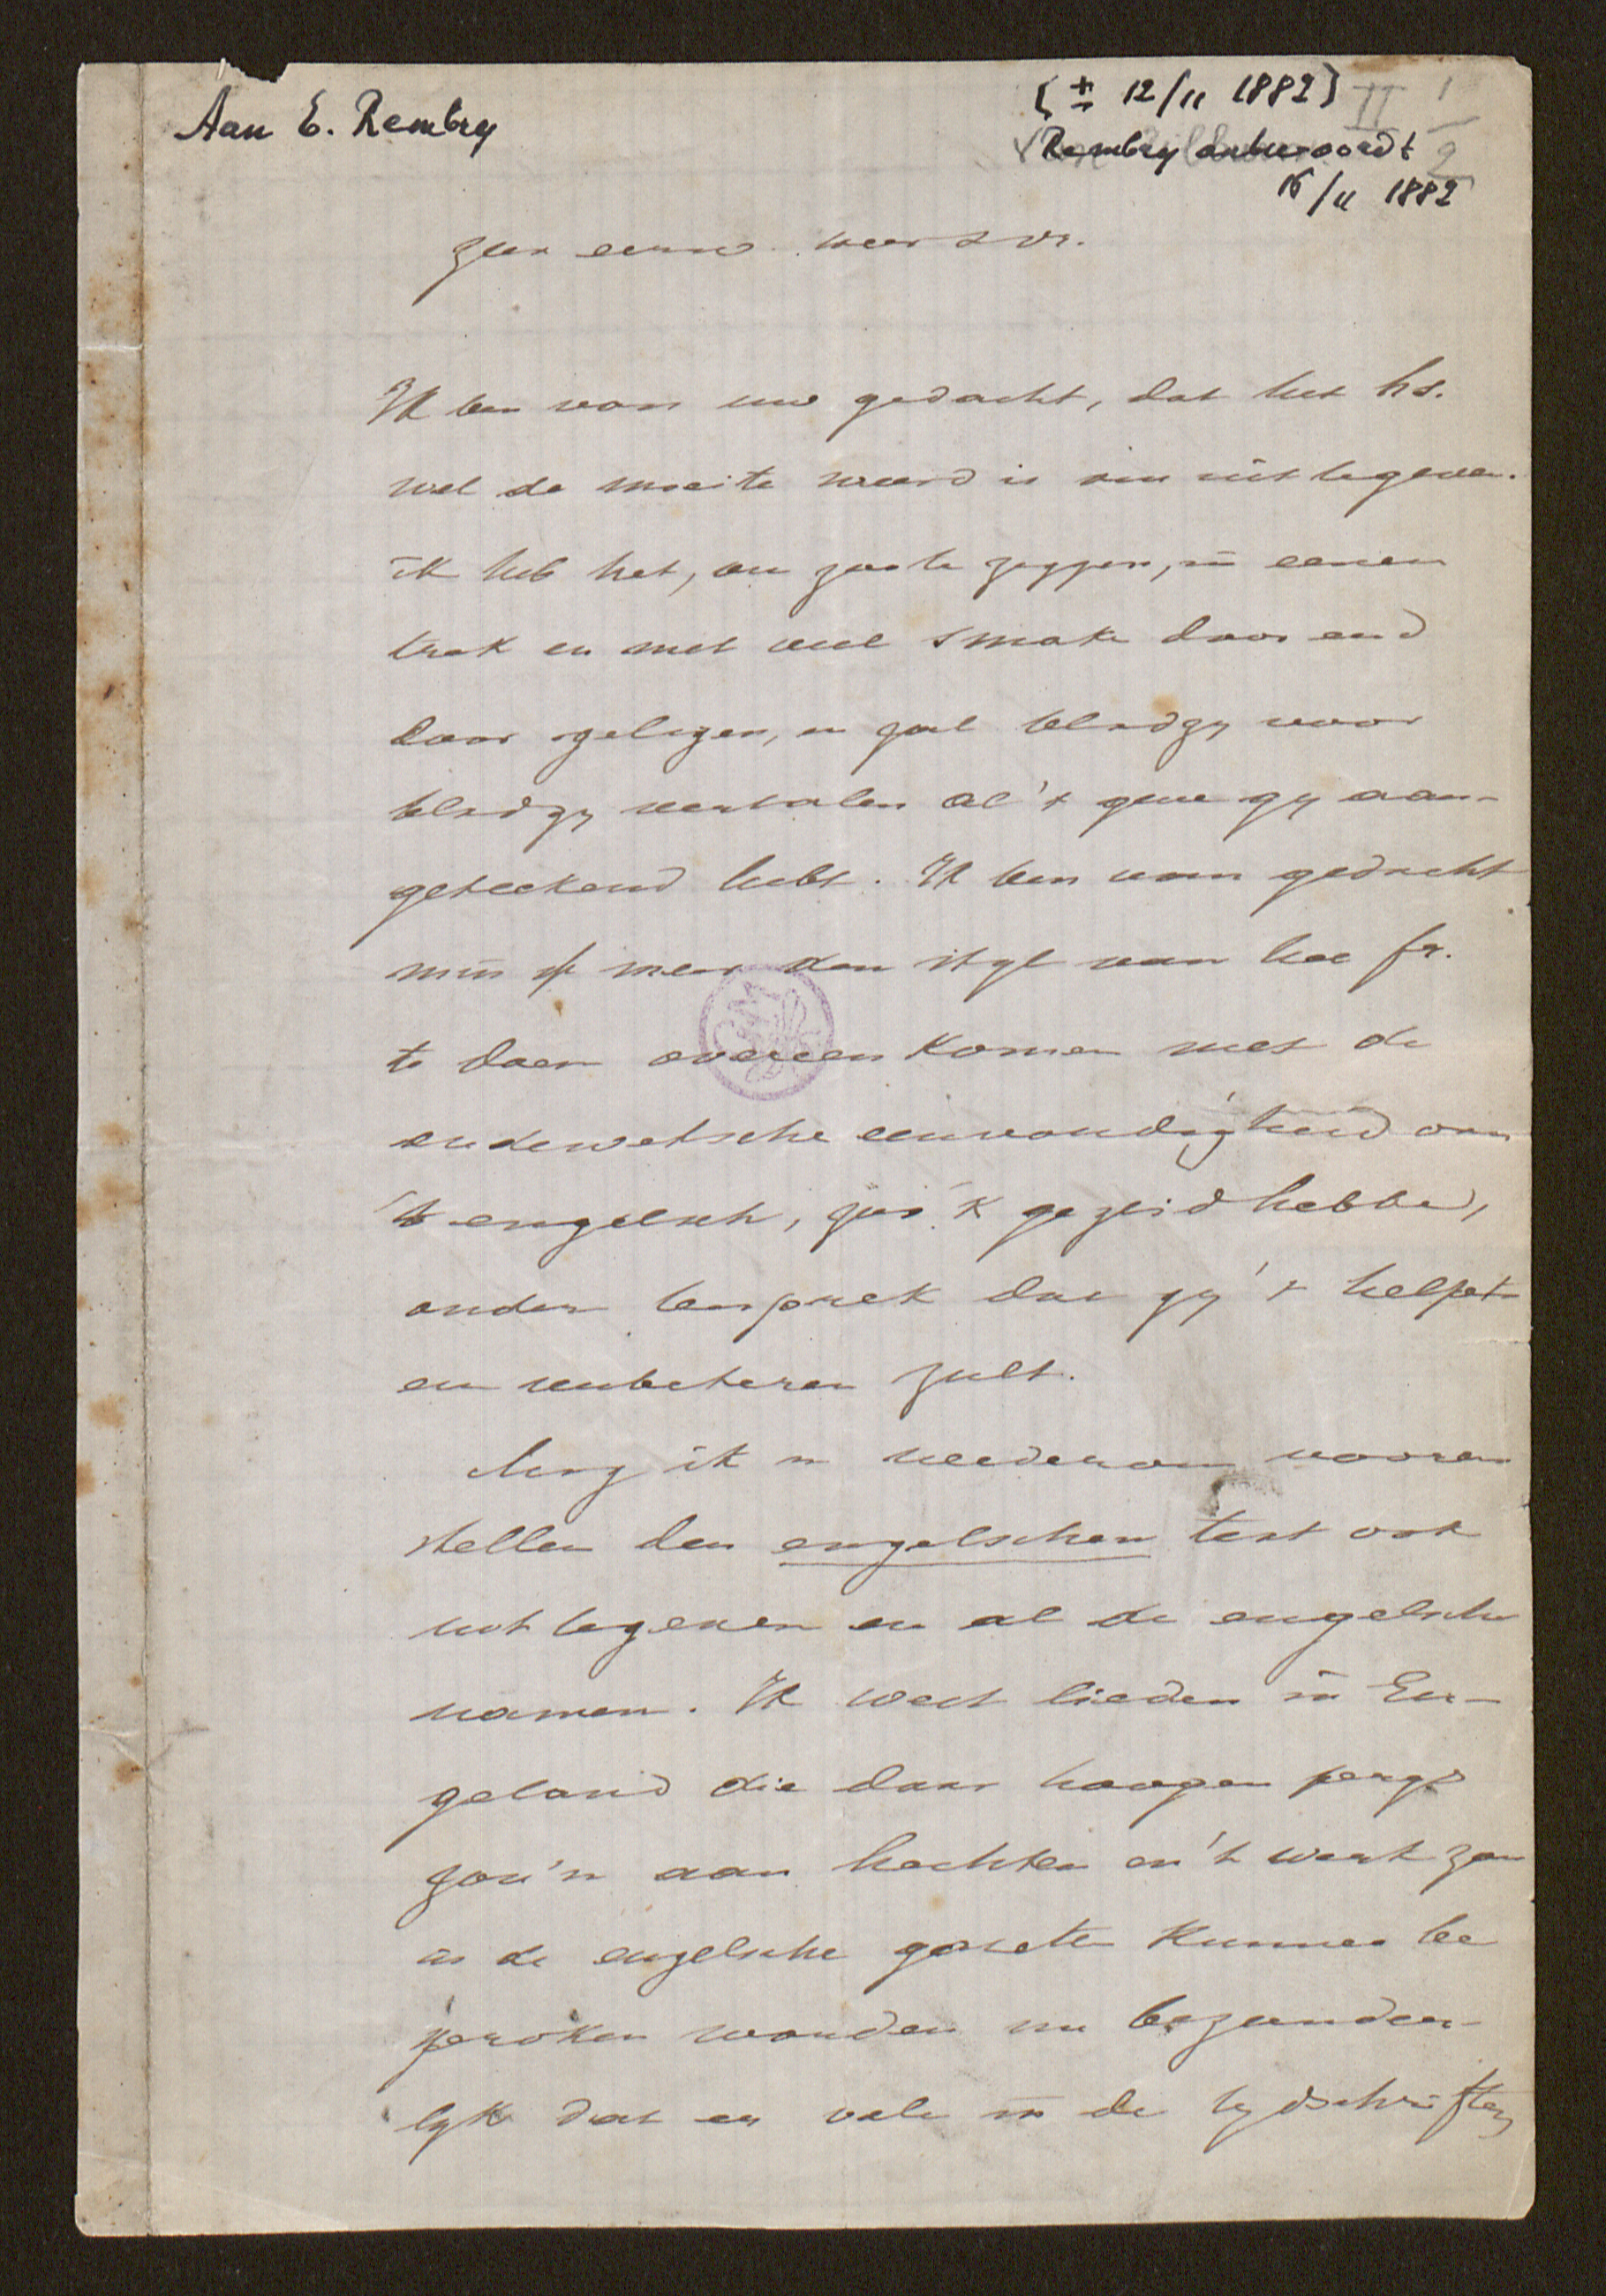 Aan E. Rembry
[± 12/11 1882] II 1
Rembry antwoordt 2
16/11 1882
zeer eerw. weerde vr.
Ik ben van uw gedacht, dat het hs.
wel de moeite weerd is om uit te geven.
ik heb het, om zoo te zeggen, in eenen
trok en met veel smake door end
door gelezen, en zal bladzy voor
bladzy vertalen al 't gene gy aan-
geteekend hebt. Ik ben van gedacht
min of meer den styl van het fr.
te doen overeen komen met de
oudewetsche eenvoudigheid van
't engelsch, zoo 'k gezeid hebbe,
onder bespreek dat gy 't helpen
en verbeteren zult.
Mag ik u wederom vooren
stellen den engelschen text ook
uit te geven en al de engelsche
namen. Ik weet lieden in En-
geland die daar hoogen prys
zou'n aan hechten en 't werk zou
in de engelsche gazetten kunnen be
sproken worden nu bezonder-
lyk dat er vele in de tydschriften